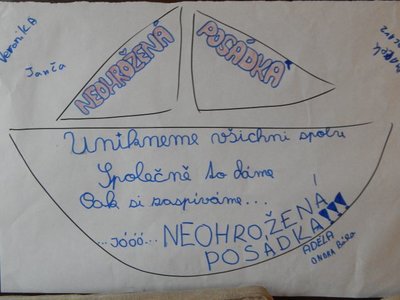 Veronika
Janča
NEOHROŽENÁ
POSÁDKA
Unikneme všichni spolu
Společně to dáme
Pak si zaspíváme...
...Jóóó... NEOHROŽENÁ
POSADKA!!!
ADÉLA
ONDRA Bára